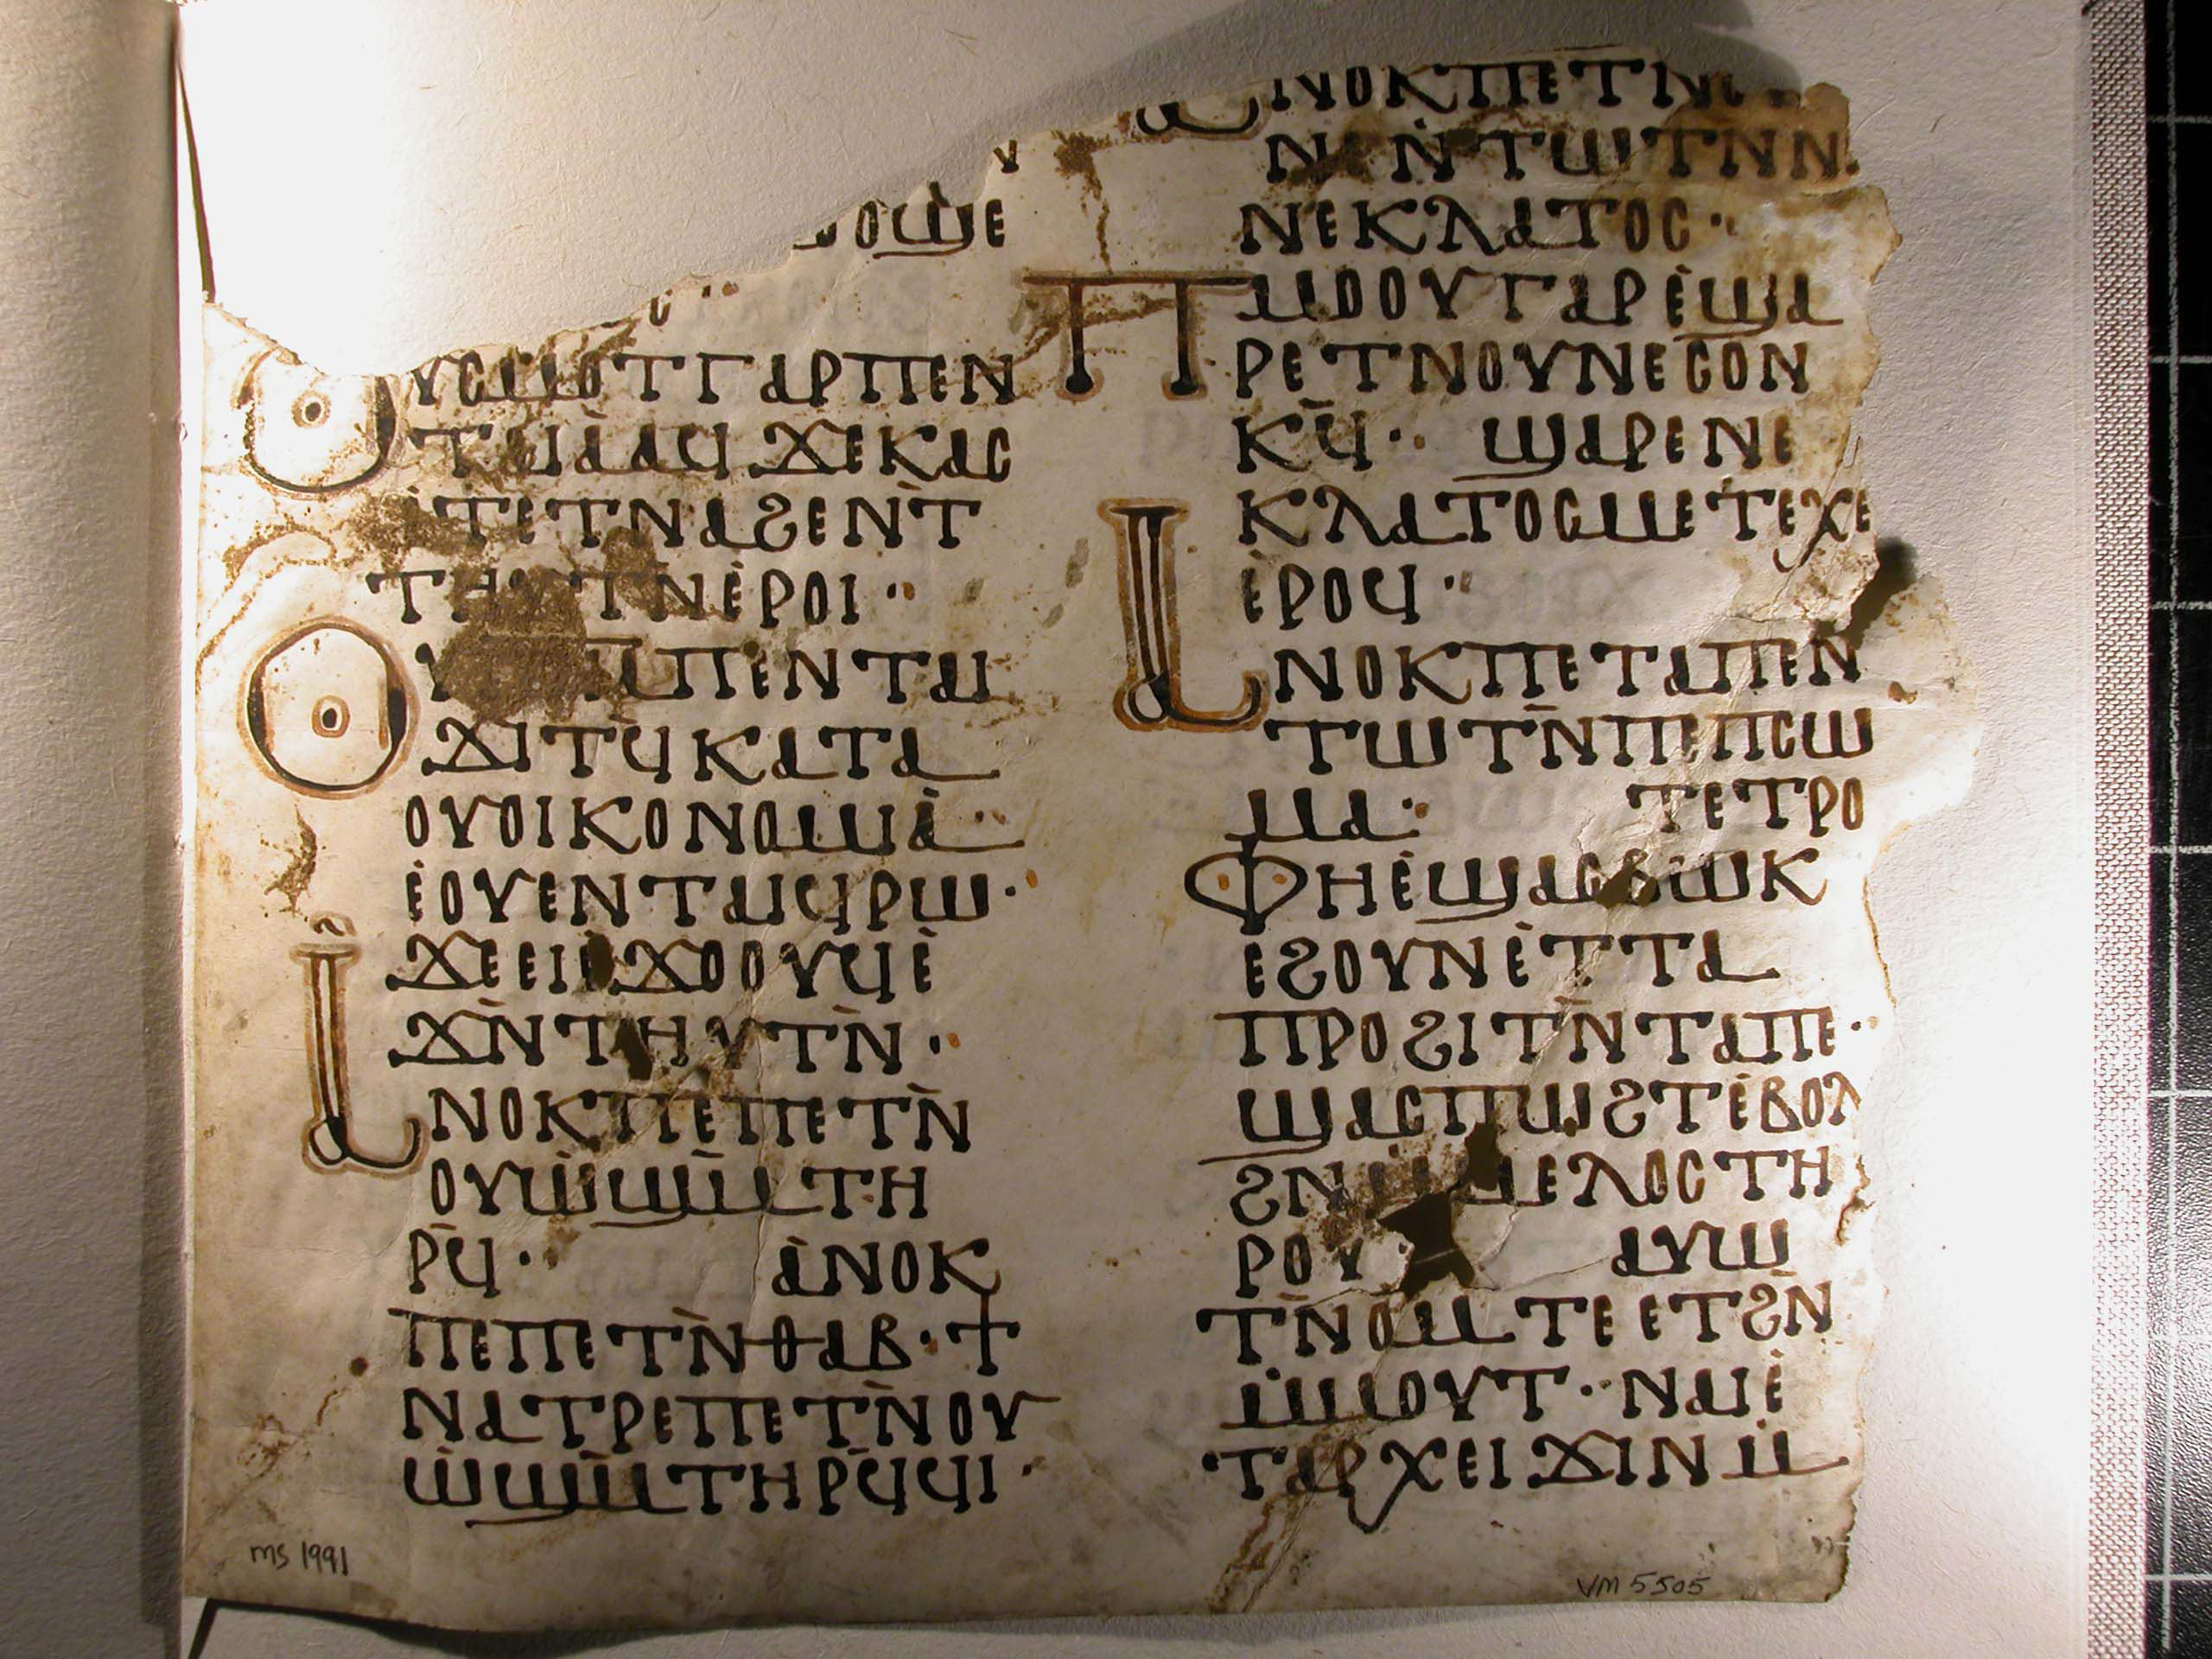 ⲟϣⲉ
ⲟⲩⲥⲙⲟⲧ ⲅⲁⲣ ⲡⲉⲛ
ⲧⲁⲓⲁⲁϥ ϫⲉⲕⲁⲥ
ⲉⲧⲉⲧⲛⲁϩⲉⲛⲧ
ⲧⲏⲩⲧⲛ ⲉⲣⲟⲓ ··
ⲡⲉⲛⲧⲁⲓ
ϫⲓⲧϥ ⲕⲁⲧⲁ
ⲟⲩⲟⲓⲕⲟⲛⲟⲙⲓⲁ ··
ⲉⲟⲩⲉⲛⲧⲁⲓϥ ⲣⲱ ·
ϫⲉ ⲉⲓⲉϫⲟⲟⲩϥ ⲉ
ϫⲛ̀ⲧⲏⲩⲧⲛ̀ ·
ⲁⲛⲟⲕ ⲡⲉ ⲡⲉⲧⲛ̀
ⲟⲩⲱϣⲙ̀ ⲧⲏ
ⲣϥ̀ ·· ⲁⲛⲟⲕ
ⲡⲉ ⲡⲉⲧⲛ̀ⲑⲁⲃ · ϯ
ⲛⲁⲧⲣⲉ ⲡⲉⲧⲛ̀ⲟⲩ
ⲱϣⲙ̀ ⲧⲏⲣϥ̀ ϥⲓ ·
ⲁⲛⲟⲕ ⲡⲉ
ⲛ̀ⲧⲱⲧⲛ ⲛ
ⲛⲉⲕⲗⲁⲧⲟⲥ ··
ⲡⲙⲟⲟⲩ ⲅⲁⲣ ⲉϣⲁ
ⲣⲉ ⲧⲛⲟⲩⲛⲉ ⲥⲟⲛ
ⲕϥ̀ ·· ϣⲁⲣⲉ ⲛⲉ
ⲕⲗⲁⲧⲟⲥ ⲙⲉⲧⲉⲭⲉ
ⲉⲣⲟϥ ··
ⲁⲛⲟⲕ ⲡⲉ ⲧⲁⲡⲉ ⲛ
ⲧⲱⲧⲛ̀ ⲡⲉ ⲡⲥⲱ
ⲙⲁ ·· ⲧⲉⲧⲣⲟ
ⲫⲏ ⲉϣⲁⲥⲃⲱⲕ
ⲉϩⲟⲩⲛ ⲉⲧⲧⲁ
ⲡⲣⲟ ϩⲓⲧⲛ̀ ⲧⲁⲡⲉ ·
ϣⲁⲥⲡⲱϩⲧ ⲉⲃⲟⲗ
ϩⲛ ⲙⲙⲉⲗⲟⲥ ⲧⲏ
ⲣⲟⲩ ⲁⲩⲱ
ⲧⲛ̀ⲟⲙⲧⲉ ⲉⲧϩⲛ̀
ⲙ̇ⲙⲟⲩⲧ ·· ⲛⲁⲓ ⲉ
ⲧⲁⲣⲭⲉⲓ ϫⲓⲛ ⲙ̀
ms 1991
VM 5505